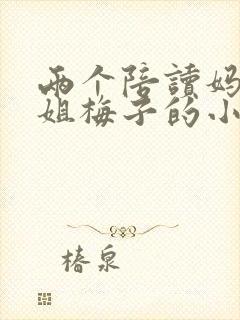 两个陪讀妈
姐梅子的小
椿泉